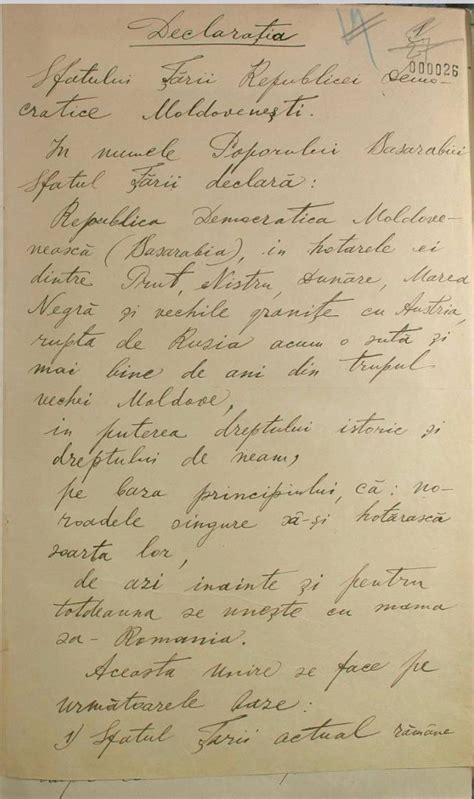 Declarația
000026
Sfatului Țării Republicei Demo-
cratice Moldovenești.
In numele Poporului Basarabiei
Sfatul Țării declară:
Republica Democratica Moldove-
nească (Basarabia), in hotarele ei
dintre Prut, Nistru, Dunare, Marea
Negră și vechile granițe cu Austria,
ruptă de Rusia acum o sută și
mai bine de ani din trupul
vechei Moldove,
in puterea dreptului istoric și
dreptului de neam,
pe baza principiului, că: no-
roadele singure să-și hotărască
soarta lor,
de azi inainte și pentru
totdeauna se unește cu mama
sa - Romania.
Aceasta unire se face pe
următoarele baze:
1) Sfatul Țării actual rămâne